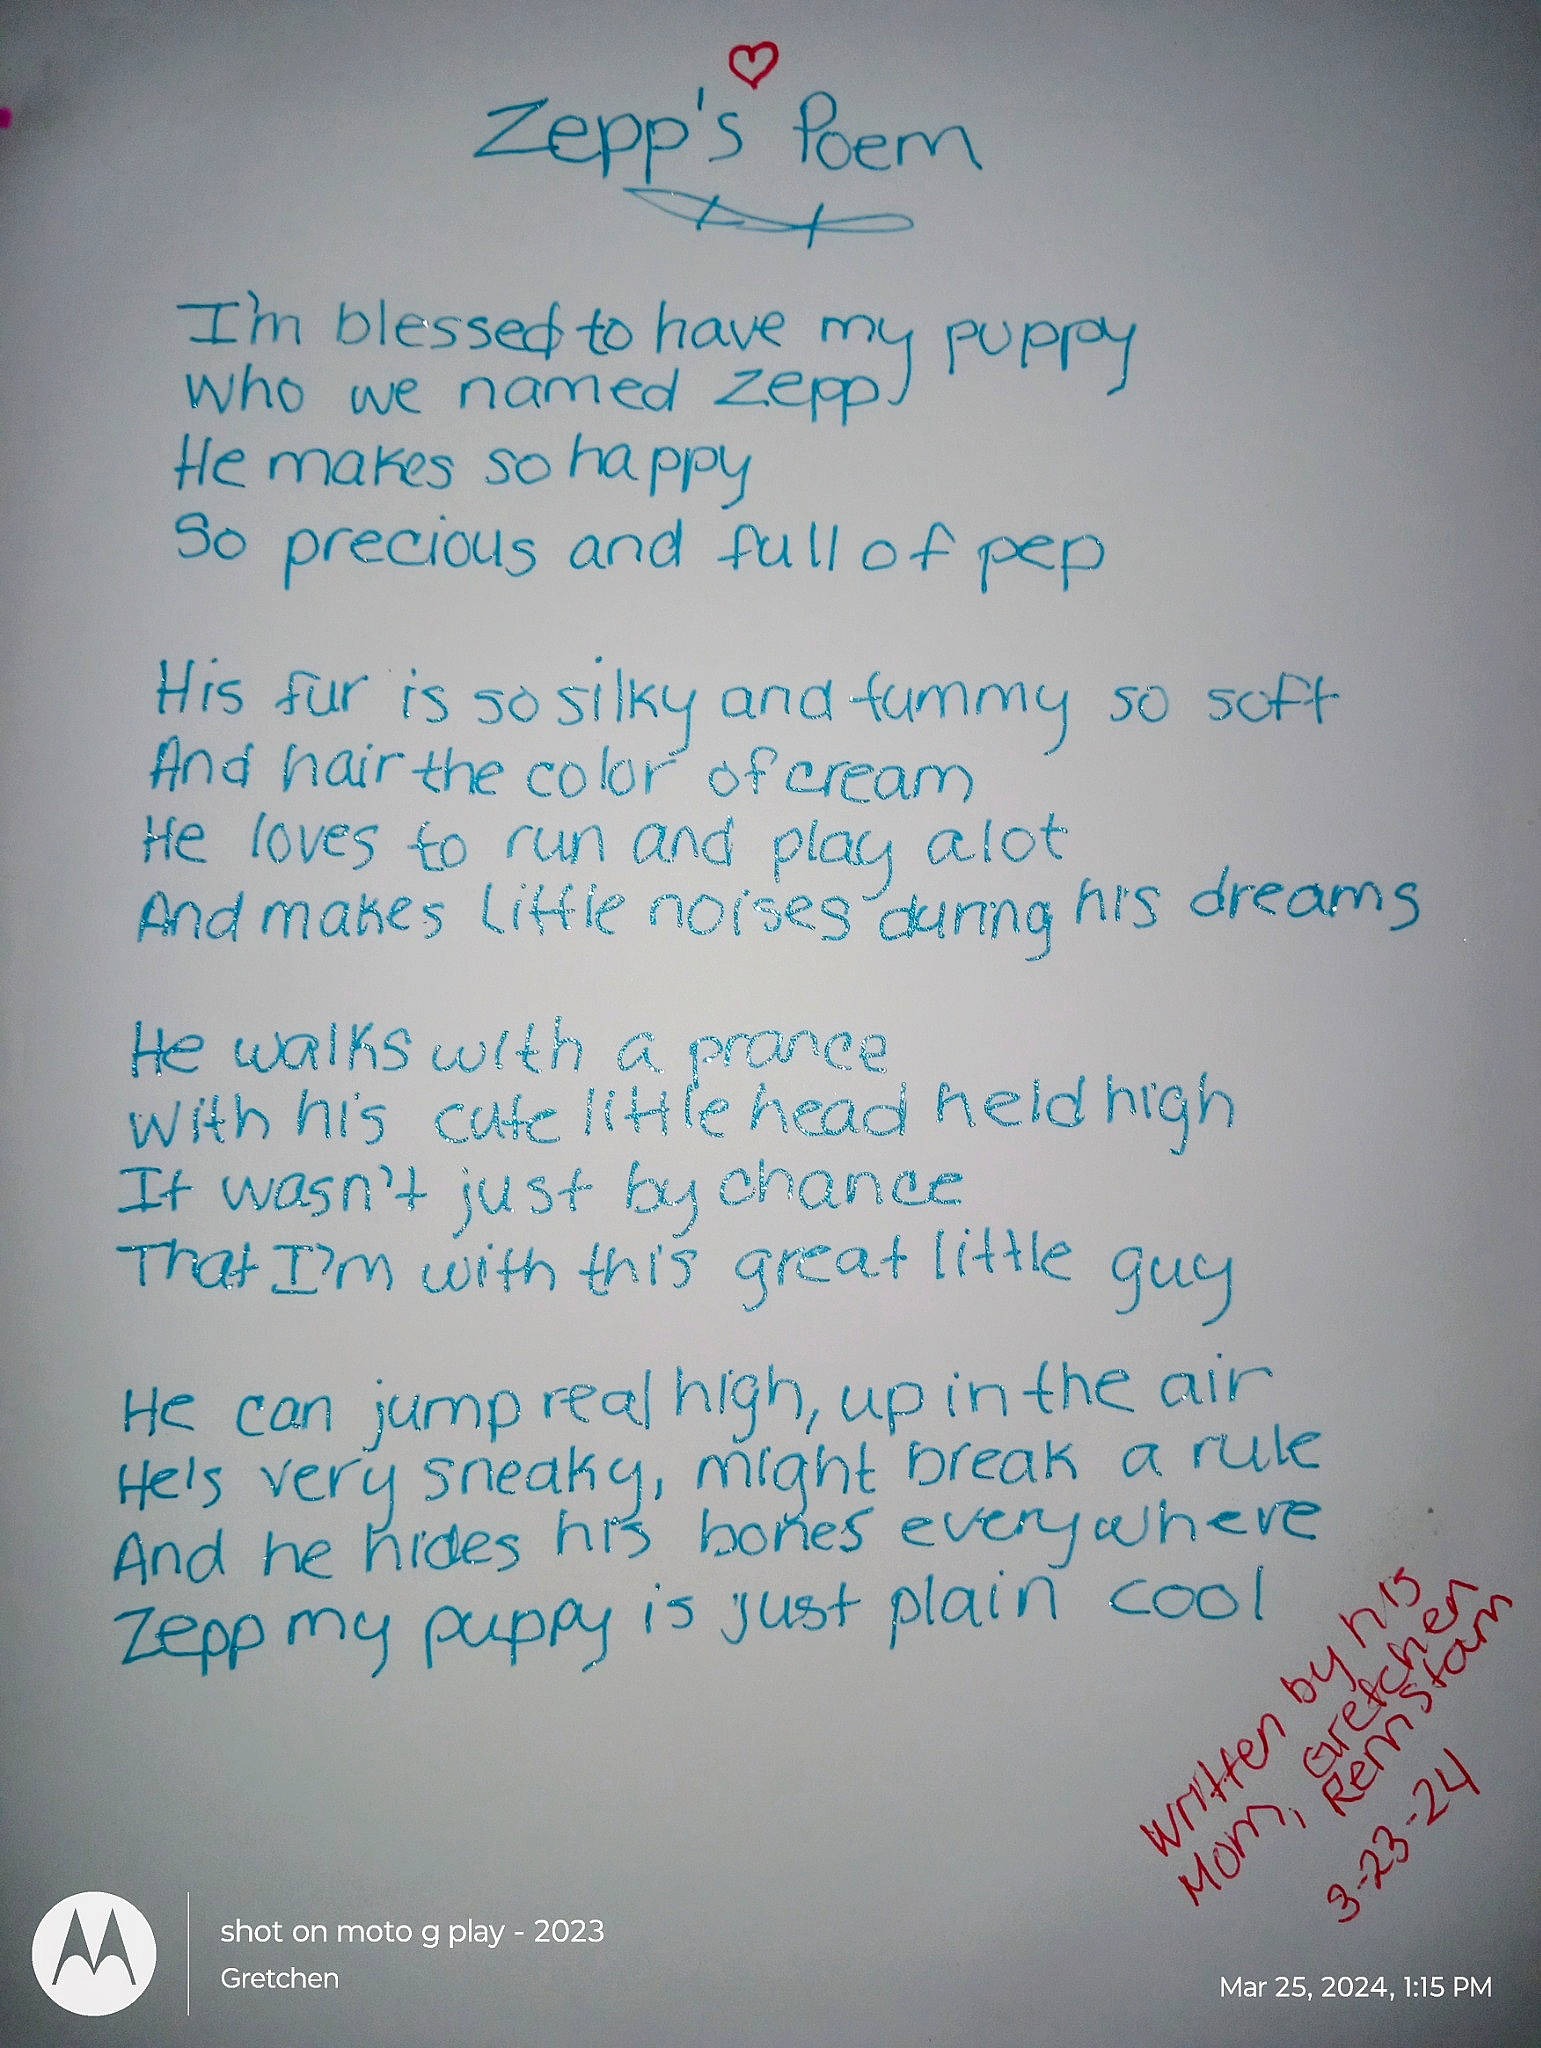 Zepp's Poem
I'm blessed to have my puppy
who we named Zepp
He makes so happy
So precious and full of pep
His fur is so silky and tummy so soft
And hair the color of cream
He loves to run and play alot
And makes little noises during his dreams
He walks with a prance
With his cute little head held high
It wasn't just by chance
That I'm with this great little guy
He can jump real high, up in the air
He's very sneaky, might break a rule
And he hides his bones everywhere
Zepp my puppy is just plain cool
Written by his
Mom, Gretchen
Remstam
3-23-24
shot on moto g play - 2023
Gretchen
Mar 25, 2024, 1:15 PM